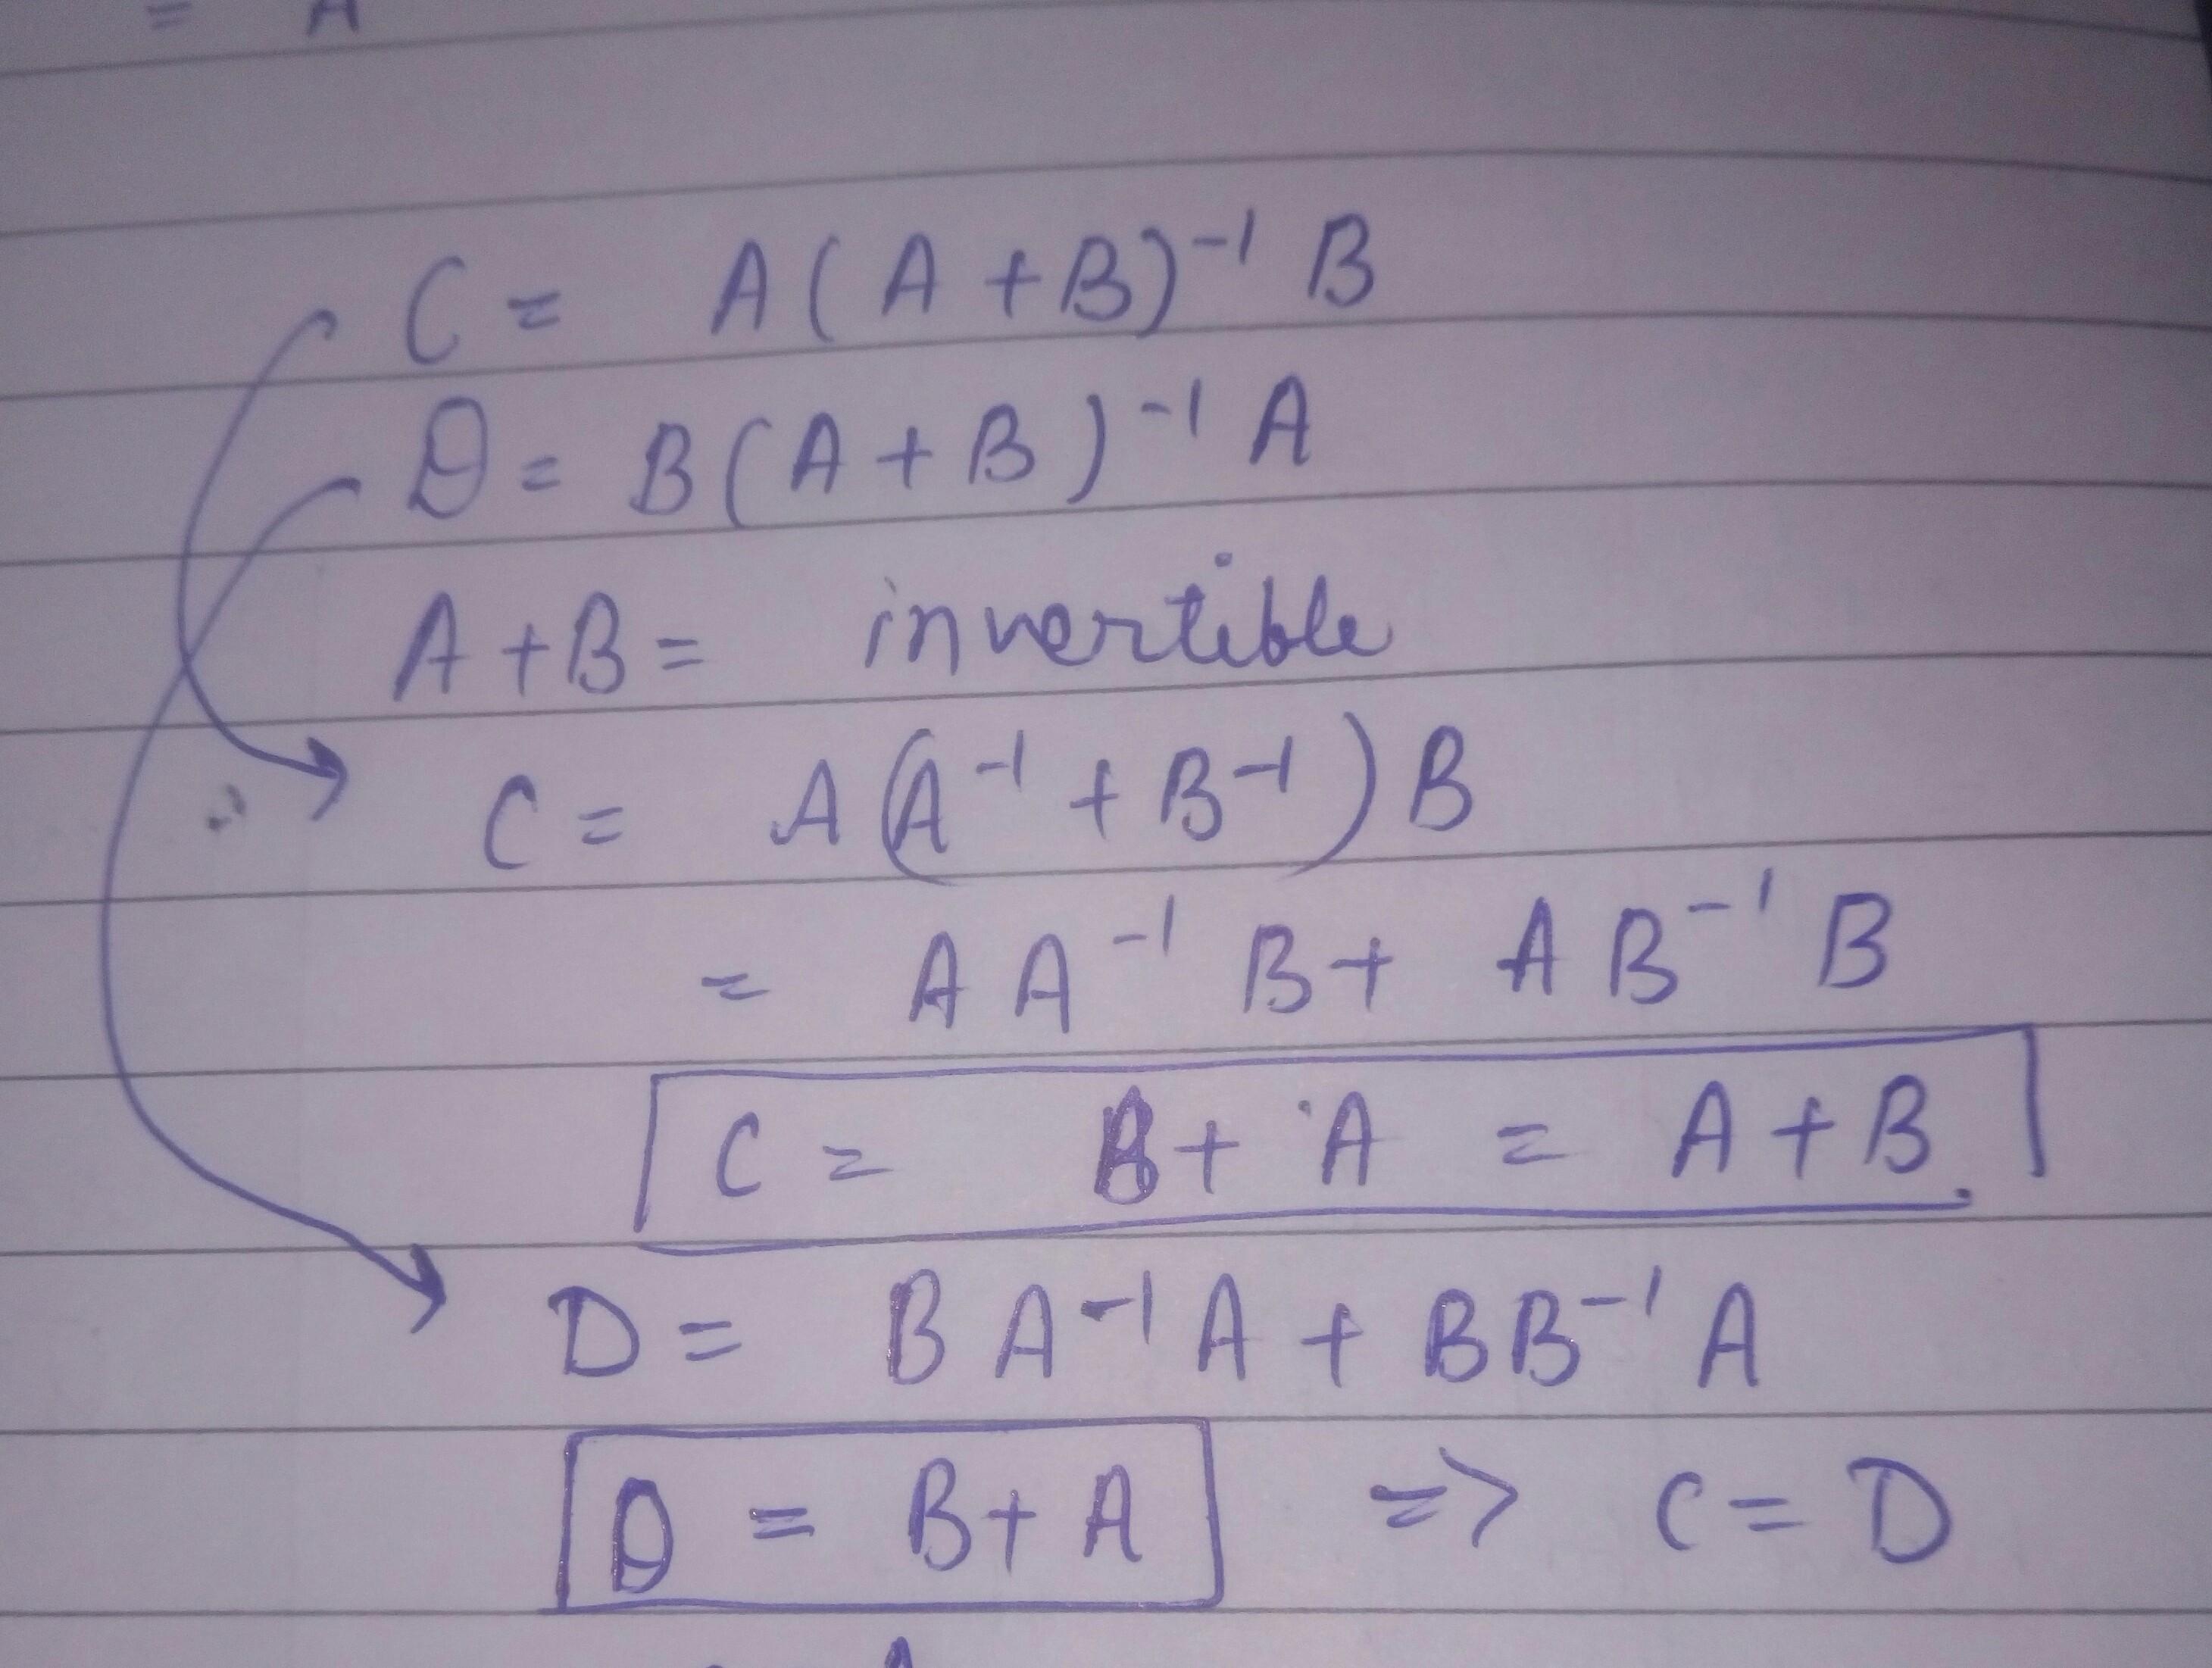 = A
C = A(A+B)⁻¹ B
D = B(A+B)⁻¹ A
A+B = invertible
C = A(A⁻¹ + B⁻¹)B
= AA⁻¹B + AB⁻¹B
C = B + A = A + B.
D = BA⁻¹A + BB⁻¹A
D = B+A => C = D